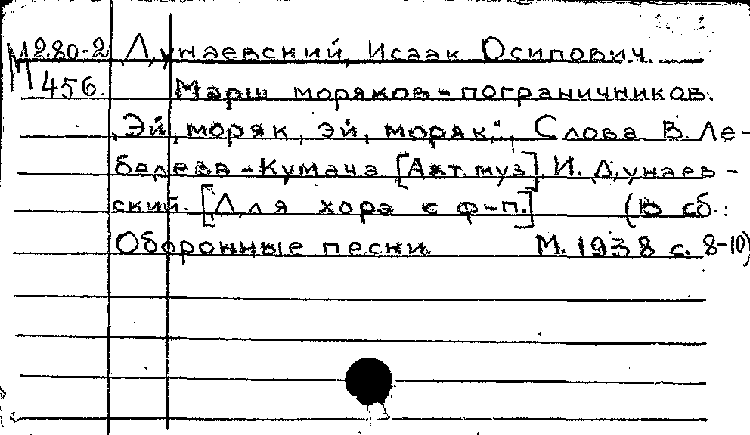 М280-2 Дунаевский, Исаак Осипович.
М456. Марш моряков-пограничников.
„Эй, моряк, эй, моряк", Слова В. Ле-
бедева-Кумача [Авт. муз.] И. Дунаев-
ский. [Для хора с ф-п.] (В сб.:
Оборонные песни М. 1938 с. 8-10)